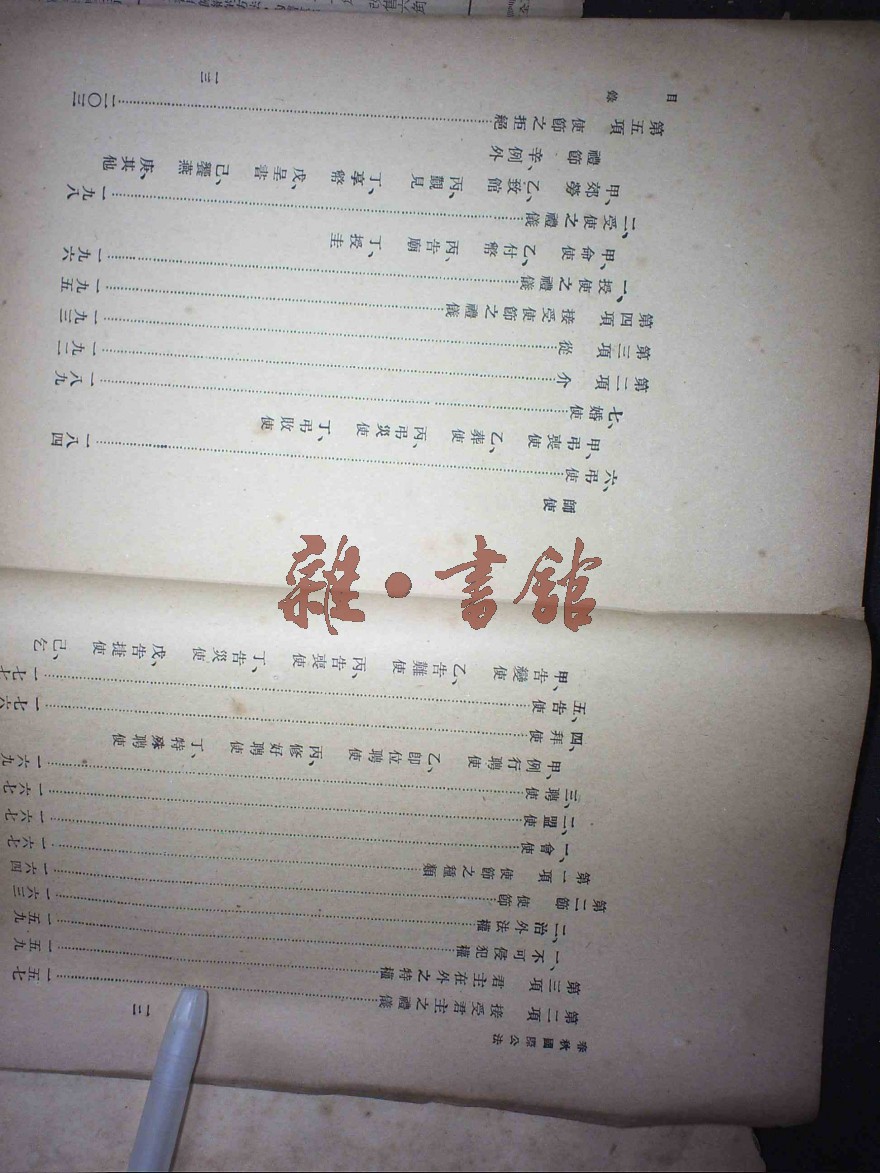 春秋國際公法 一二
第二項 接受君主之禮儀……一五七
第三項 君主在外之特權……一五九
一、不可侵犯權……一五九
二、治外法權……一六三
第二節 使節……一六四
第一項 使節之種類……一六七
一、會使……一六七
二、盟使……一六七
三、聘使……一六九
甲、例行聘使 乙、即位聘使 丙、修好聘使 丁、特殊聘使
四、拜使……一七六
五、告使……一七七
甲、告變使 乙、告難使 丙、告喪使 丁、告災使 戊、告捷使 己、乞
師使
六、弔使……一八四
甲、弔喪使 乙、葬使 丙、弔災使 丁、弔敗使
七、婚使……一八九
第二項 介……一九二
第三項 從……一九三
第四項 接受使節之禮儀……一九五
一、授使之禮儀……一九六
甲、命使 乙、付幣 丙、告廟 丁、授圭
二、受使之禮儀……一九八
甲、郊勞 乙、致館 丙、觀見 丁、享幣 戊、呈書 己、饗燕 庚、其他
禮節 辛、例外
第五項 使節之拒絕……二〇三
目錄 一三
雜·書館